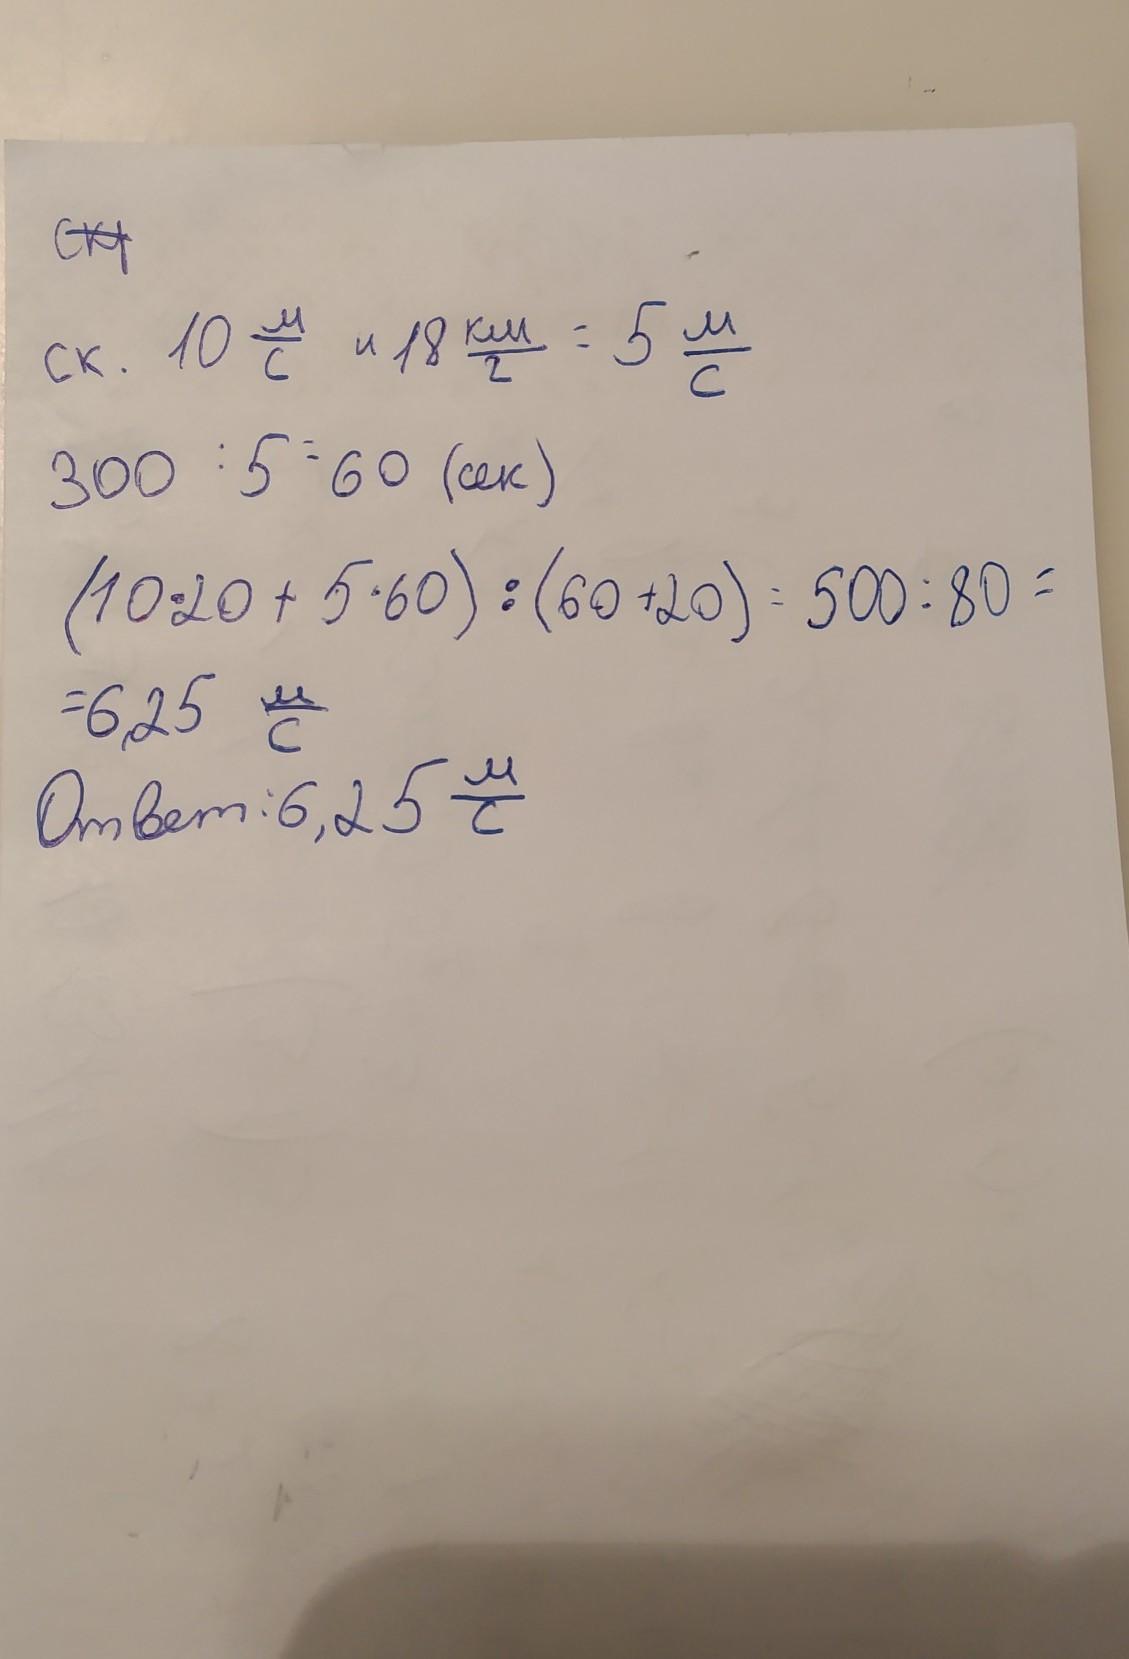 ск. 10 м/с и 18 км/г = 5 м/с
300 : 5 = 60 (сек)
(10·20 + 5·60) : (60+20) = 500 : 80 =
=6,25 м/с
Ответ: 6,25 м/с